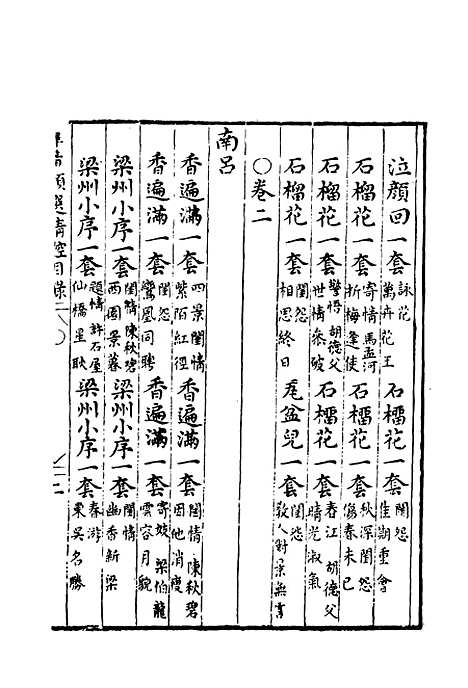 泣顏回一套 詠花 萬卉花王 石榴花一套 閨怨 佳期重會
石榴花一套 寄情 馬孟河 折梅逢使 石榴花一套 秋深閨怨 傷春未已
石榴花一套 警悟 胡德父 世情參破 石榴花一套 春江 胡德父 晴光淑氣
石榴花一套 閨怨 相思終日 瓦盆兒一套 閨怨 教人對景無言
○卷二
南呂
香遍滿一套 四景閨情 紫陌紅徑 香遍滿一套 閨情 陳秋碧 因他消瘦
香遍滿一套 閨怨 鸞凰同聘 香遍滿一套 寄妓 梁伯龍 雲容月貌
梁州小序一套 閨情 陳秋碧 西園景暮 梁州小序一套 閨情 幽香新梁
梁州小序一套 題情 許石屋 仙橋星耿 梁州小序一套 春游 東吳名勝